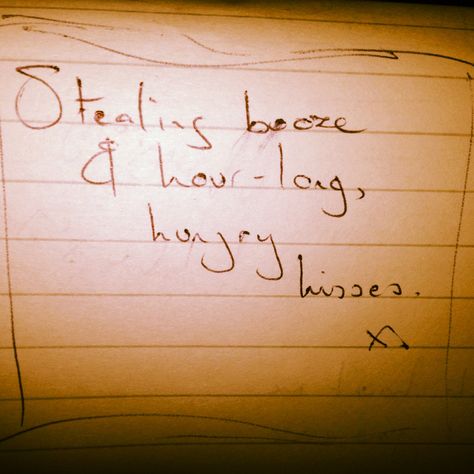 Stealing booze
& hour-long,
hungry
kisses.
x